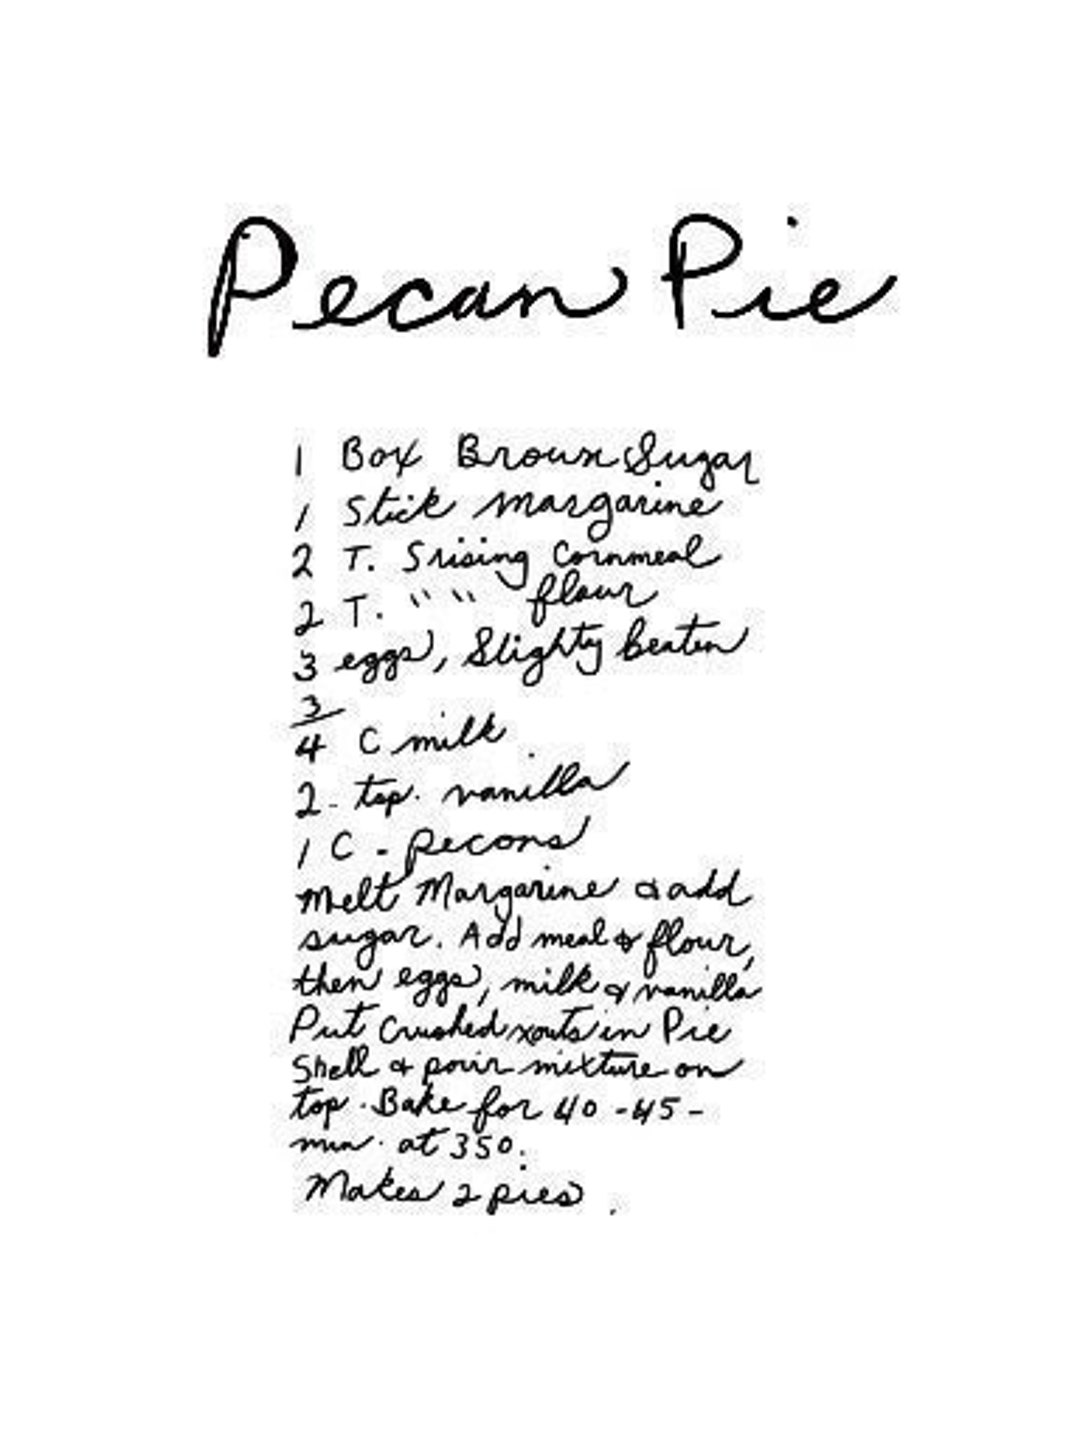 Pecan Pie
1 Box Brown Sugar
1 Stick margarine
2 T. S rising Cornmeal
2 T. " " flour
3 eggs, Slighty beaten
3/4 C milk
2 - tsp. vanilla
1 C - pecans
Melt Margarine & add
sugar. Add meal & flour,
then eggs, milk & vanilla
Put Crushed nuts in Pie
Shell & pour mixture on
top. Bake for 40 - 45 -
min. at 350.
Makes 2 pies.